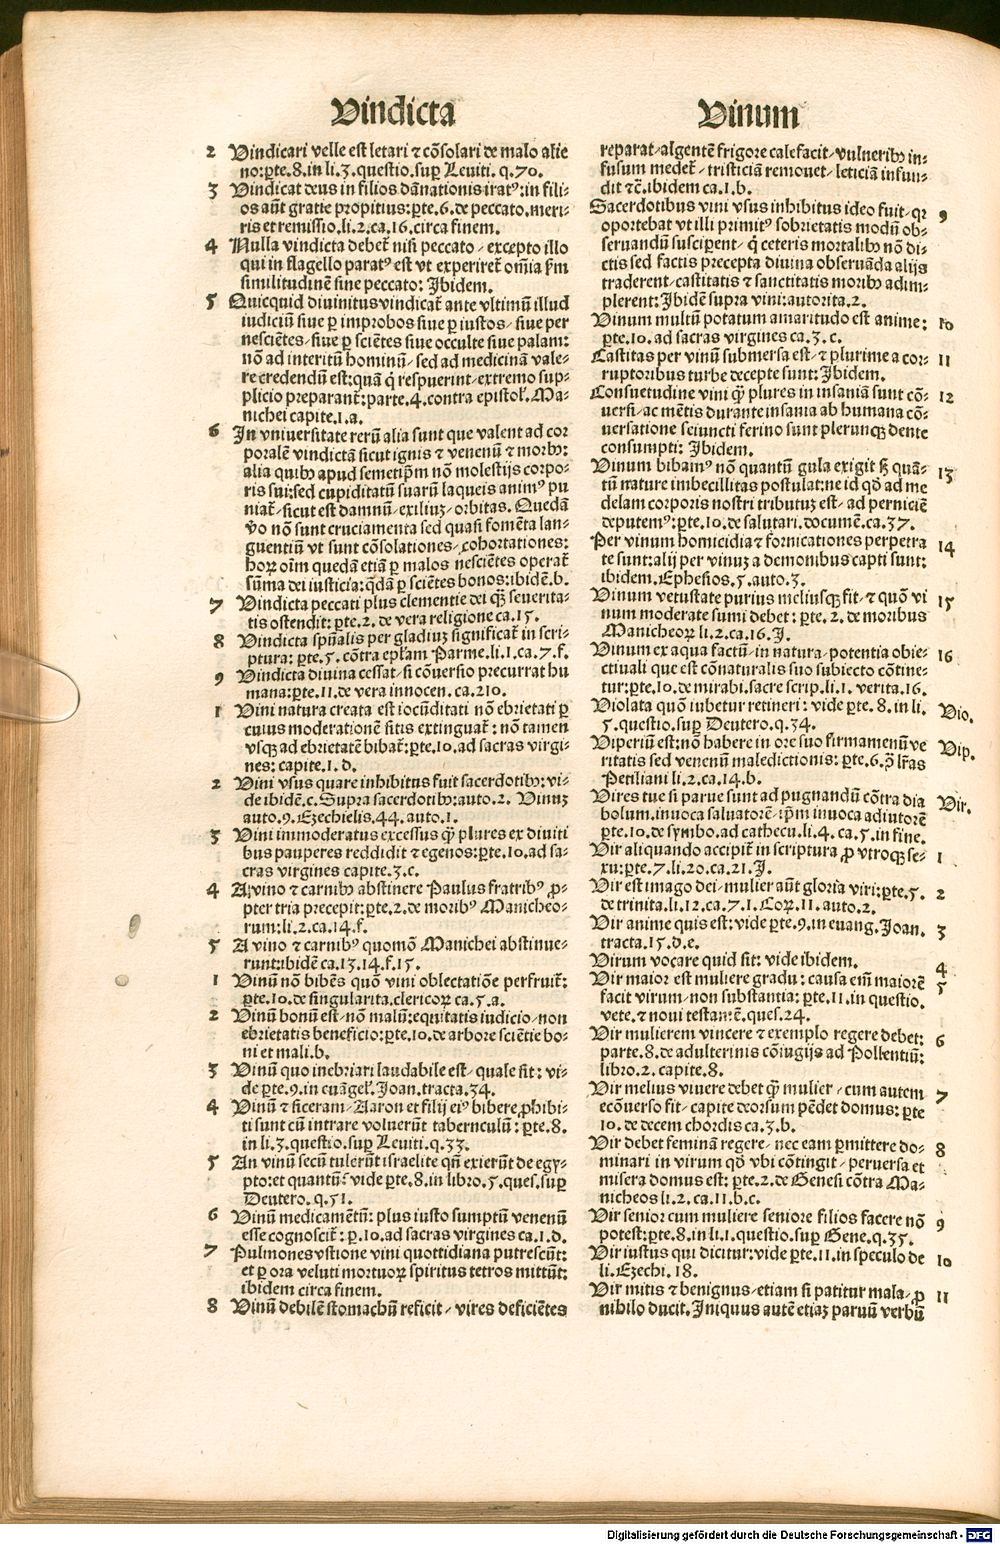 Vindicta
2 Vindicari velle est letari ⁊ cōsolari de malo alie
no:ꝑte.8.in li.3.questio.suꝑ Leuiti. q.70.
3 Vindicat deus in filios dānationis iratꝰ:in fili-
os aūt gratie propitius:ꝑte.6.de peccato.meri-
ris et remissio.li.2.ca.16.circa finem.
4 Nulla vindicta debet̄ nisi peccato / excepto illo
qui in flagello paratꝰ est vt experiret̄ oīa ẜm
similitudinē sine peccato: Ibidem.
5 Quicquid diuinitus vindicat̄ ante vltimū illud
iudiciū siue ꝑ improbos siue ꝑ iustos / siue per
nesciētes / siue ꝑ sciētes siue occulte siue palam:
nō ad interitū hominū / sed ad medicinā vale-
re credendū est:quā q̄ respuerint / extremo sup-
plicio preparant̄:parte.4.contra epistol̄.Ma-
nichei capite.1.a.
6 In vniuersitate rerū alia sunt que valent ad cor
poralē vindictā sicut ignis ⁊ venenū ⁊ morbꝰ:
alia quibꝰ apud semetip̄m nō molestijs corpo-
ris sui:sed cupiditatū suarū laqueis animꝰ pu
niat̄ / sicut est damnū / exiliuꝫ / orbitas. Quedā
v̄o nō sunt cruciamenta sed quasi fomēta lan-
guentiū vt sunt cōsolationes / cohortationes:
hoꝝ oīm quedā etiā ꝑ malos nesciētes operat̄
sūma dei iusticia:q̄dā ꝑ sciētes bonos:ibidē.b.
7 Vindicta peccati plus clementie dei q̄ȝ seuerita-
tis ostendit: ꝑte.2. de vera religione ca.15.
8 Vindicta spūalis per gladiuꝫ significat̄ in scri-
ptura: ꝑte.5. cōtra ep̄lam Parme.li.1.ca.7.f.
9 Vindicta diuina cessat / si cōuersio precurrat hu
mana:ꝑte.11.de vera innocen.ca.210.
1 Vini natura creata est iocūditati nō ebrietati ꝑ
cuius moderationē sitis extinguat̄: nō tamen
vsqȝ ad ebrietatē bibat̄:ꝑte.10.ad sacras virgi-
nes: capite.1.d.
2 Vini vsus quare inhibitus fuit sacerdotibꝰ:vi-
de ibidē.c.Supra sacerdotibꝰ:auto.2. Vinuꝫ
auto.9.Ezechielis.44.auto.1.
3 Vini immoderatus excessus q̄ȝ plures ex diuiti
bus pauperes reddidit ⁊ egenos:ꝑte.10.ad sa-
cras virgines capite.3.c.
4 A vino ⁊ carnibꝰ abstinere Paulus fratribꝰ ꝓ-
pter tria precepit:ꝑte.2.de moribꝰ Manicheo-
rum:li.2.ca.14.f.
5 A vino ⁊ carnibꝰ quomō Manichei abstinue-
runt:ibidē ca.13.14.f.15.
1 Vinū nō bibēs quō vini oblectatiōe perfruit̄:
ꝑte.10.de singularita.clericoꝝ ca.5.a.
2 Vinū bonū est / nō malū:equitatis iudicio / non
ebrietatis beneficio:ꝑte.10.de arbore sciētie bo-
ni et mali.b.
3 Vinū quo inebriari laudabile est / quale sit: vi-
de ꝑte.9.in euāgel̄.Joan.tracta.34.
4 Vinū ⁊ siceram / Aaron et filij eiꝰ bibere ꝓhibi-
ti sunt cū intrare voluerūt tabernculū: ꝑte.8.
in li.3.questio.suꝑ Leuiti.q.33.
5 An vinū secū tulerūt israelite qn̄ exierūt de egy-
pto:et quantū:vide ꝑte.8.in libro.5.ques.suꝑ
Deutero.q.51.
6 Vinū medicamētū: plus iusto sumptū venenū
esse cognoscit̄: ꝑ.10.ad sacras virgines ca.1.d.
7 Pulmones vstione vini quottidiana putrescūt:
et ꝑ ora veluti mortuoꝝ spiritus tetros mittūt:
ibidem circa finem.
8 Vinū debilē stomachū reficit / vires deficiētes
Vinum
reparat / algentē frigore calefacit / vulneribꝰ in-
fusum medet̄ / tristiciā remouet / leticiā infun-
dit ⁊c̄.ibidem ca.1.b.
Sacerdotibus vini vsus inhibitus ideo fuit / qꝛ 9
oportebat vt illi primitꝰ sobrietatis modū ob-
seruandū susciperent / q̄ ceteris mortalibꝰ nō di-
ctis sed factis precepta diuina obseruāda alijs
traderent / castitatis ⁊ sanctitatis moribꝰ adim-
plerent:Ibidē supra vini:autorita.2.
Vinum multū potatum amaritudo est anime: 10
ꝑte.10.ad sacras virgines ca.3.c.
Castitas per vinū submersa est / ⁊ plurime a cor- 11
ruptoribus turbe decepte sunt:Ibidem.
Consuetudine vini q̄ȝ plures in insaniā sunt cō- 12
uersi / ac mētis durante insania ab humana cō-
uersatione seiuncti ferino sunt plerunqȝ dente
consumpti: Ibidem.
Vinum bibamꝰ nō quantū gula exigit sȝ quā- 13
tū nature imbecillitas postulat:ne id qd̄ ad me
delam corporis nostri tributuꝫ est / ad perniciē
deputemꝰ:ꝑte.10.de salutari.documē.ca.37.
Per vinum homicidia ⁊ fornicationes perpetra 14
te sunt:alij per vinuꝫ a demonibus capti sunt:
ibidem.Ephesios.5.auto.3.
Vinum vetustate purius meliusqȝ fit / ⁊ quō vi 15
num moderate sumi debet: ꝑte.2. de moribus
Manicheoꝝ li.2.ca.16.J.
Vinum ex aqua factū / in natura / potentia obie- 16
ctiuali que est cōnaturalis suo subiecto cōtine-
tur:ꝑte.10.de mirabi.sacre scrip.li.1. verita.16.
Violata quō iubetur retineri: vide ꝑte.8.in li. Vio.
5.questio.suꝑ Deutero.q.34.
Viperiū est:nō habere in ore suo firmamenū ve Vip.
ritatis sed venenū maledictionis: ꝑte.6.ꝯ̄ lr̄as
Petiliani li.2.ca.14.b.
Vires tue si parue sunt ad pugnandū cōtra dia Vir.
bolum.inuoca saluatorē / ip̄m inuoca adiutorē
ꝑte.10.de symbo.ad cathecu.li.4.ca.5.in fine.
Vir aliquando accipit̄ in scriptura ꝓ vtroqȝ se- 1
xu:ꝑte.7.li.20.ca.21.J.
Vir est imago dei / mulier aūt gloria viri:ꝑte.5. 2
de trinita.li.12.ca.7.1.Coꝝ.11.auto.2.
Vir anime quis est:vide ꝑte.9.in euang.Joan. 3
tracta.15.d.e.
Virum vocare quid sit: vide ibidem. 4
Vir maior est muliere gradu: causa em̄ maiorē 5
facit virum / non substantia: ꝑte.11.in questio.
vete.⁊ noui testamē.ques.24.
Vir mulierem vincere ⁊ exemplo regere debet: 6
parte.8.de adulterinis cōiugijs ad Pollentiū:
libro.2.capite.8.
Vir melius viuere debet q̄ȝ mulier / cum autem 7
ecōuerso fit / capite deorsum pēdet domus: ꝑte
10.de decem chordis ca.3.b.
Vir debet feminā regere / nec eam ꝑmittere do- 8
minari in virum qd̄ vbi cōtingit / peruersa et
misera domus est: ꝑte.2.de Genesi cōtra Ma-
nicheos li.2.ca.11.b.c.
Vir senior cum muliere seniore filios facere nō 9
potest:ꝑte.8.in li.1.questio.suꝑ Gene.q.35.
Vir iustus qui dicitur:vide ꝑte.11.in speculo de 10
li.Ezechi.18.
Vir mitis ⁊ benignus / etiam si patitur mala / ꝓ 11
nihilo ducit.Iniquus autē etiaꝫ paruū verbū
Digitalisierung gefördert durch die Deutsche Forschungsgemeinschaft - DFG